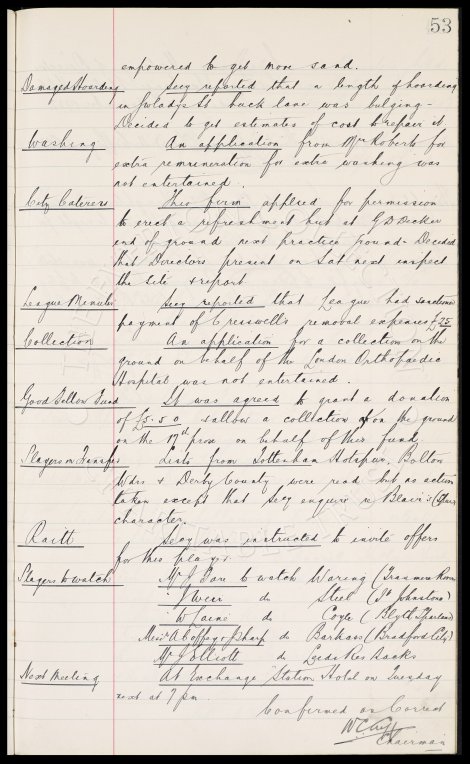 53
empowered to get more sand.
Damaged Hoarding Secy reported that a length of hoarding
in Gwladys St back lane was bulging -
Decided to get estimates of cost to repair it
Washing An application from Mrs Roberts for
extra remuneration for extra washing was
not entertained.
City Caterers This firm applied for permission
to erect a refreshment hut at G D Decker
end of ground next practice ground - Decided
that Directors present on Sat next inspect
the site & report
League Minutes Secy reported that League had sanctioned
payment of Cresswell's removal expenses £25
Collection An application for a collection on the
ground on behalf of the London Orthopaedic
Hospital was not entertained.
Good Fellow Fund It was agreed to grant a donation
of £5.5.0 & allow a collection on the ground
on the 17th prox on behalf of this fund
Players on Transfer Lists from Tottenham Hotspur, Bolton
Wdrs & Derby County were read but no action
taken except that Secy enquire re Blair's
character.
Raitt Secy was instructed to invite offers
for this player.
Players to watch Mr J to watch Waring (Tranmere Rovers
J Wear do Steel (St Johnstone)
W do Coyle (Blyth Spartans)
Messrs A Coffey & Sharp do Barkass (Bradford City)
Mr J Elliott do Leeds Res backs
Next Meeting At Exchange Station Hotel on Tuesday
next at 7 pm.
Confirmed as Correct
W C Cuff
Chairman